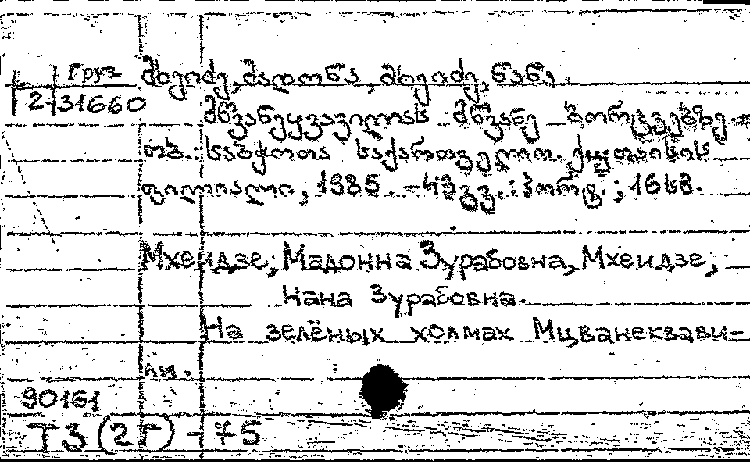 Груз
2-31660
მხეიძე, მადონა, მხეიძე, ნანა.
მწვანეყვავილას მწვანე ბორცვებზე. -
თბ.: საბჭოთა საქართველო. ქუთაისის
ფილიალი, 1985. - 49გვ.: პორტ.; 16სმ.
Мхеидзе, Мадонна Зурабовна, Мхеидзе,
Нана Зурабовна.
На зелёных холмах Мцванеквави-
ли.
90161
Т3(2Г)-75